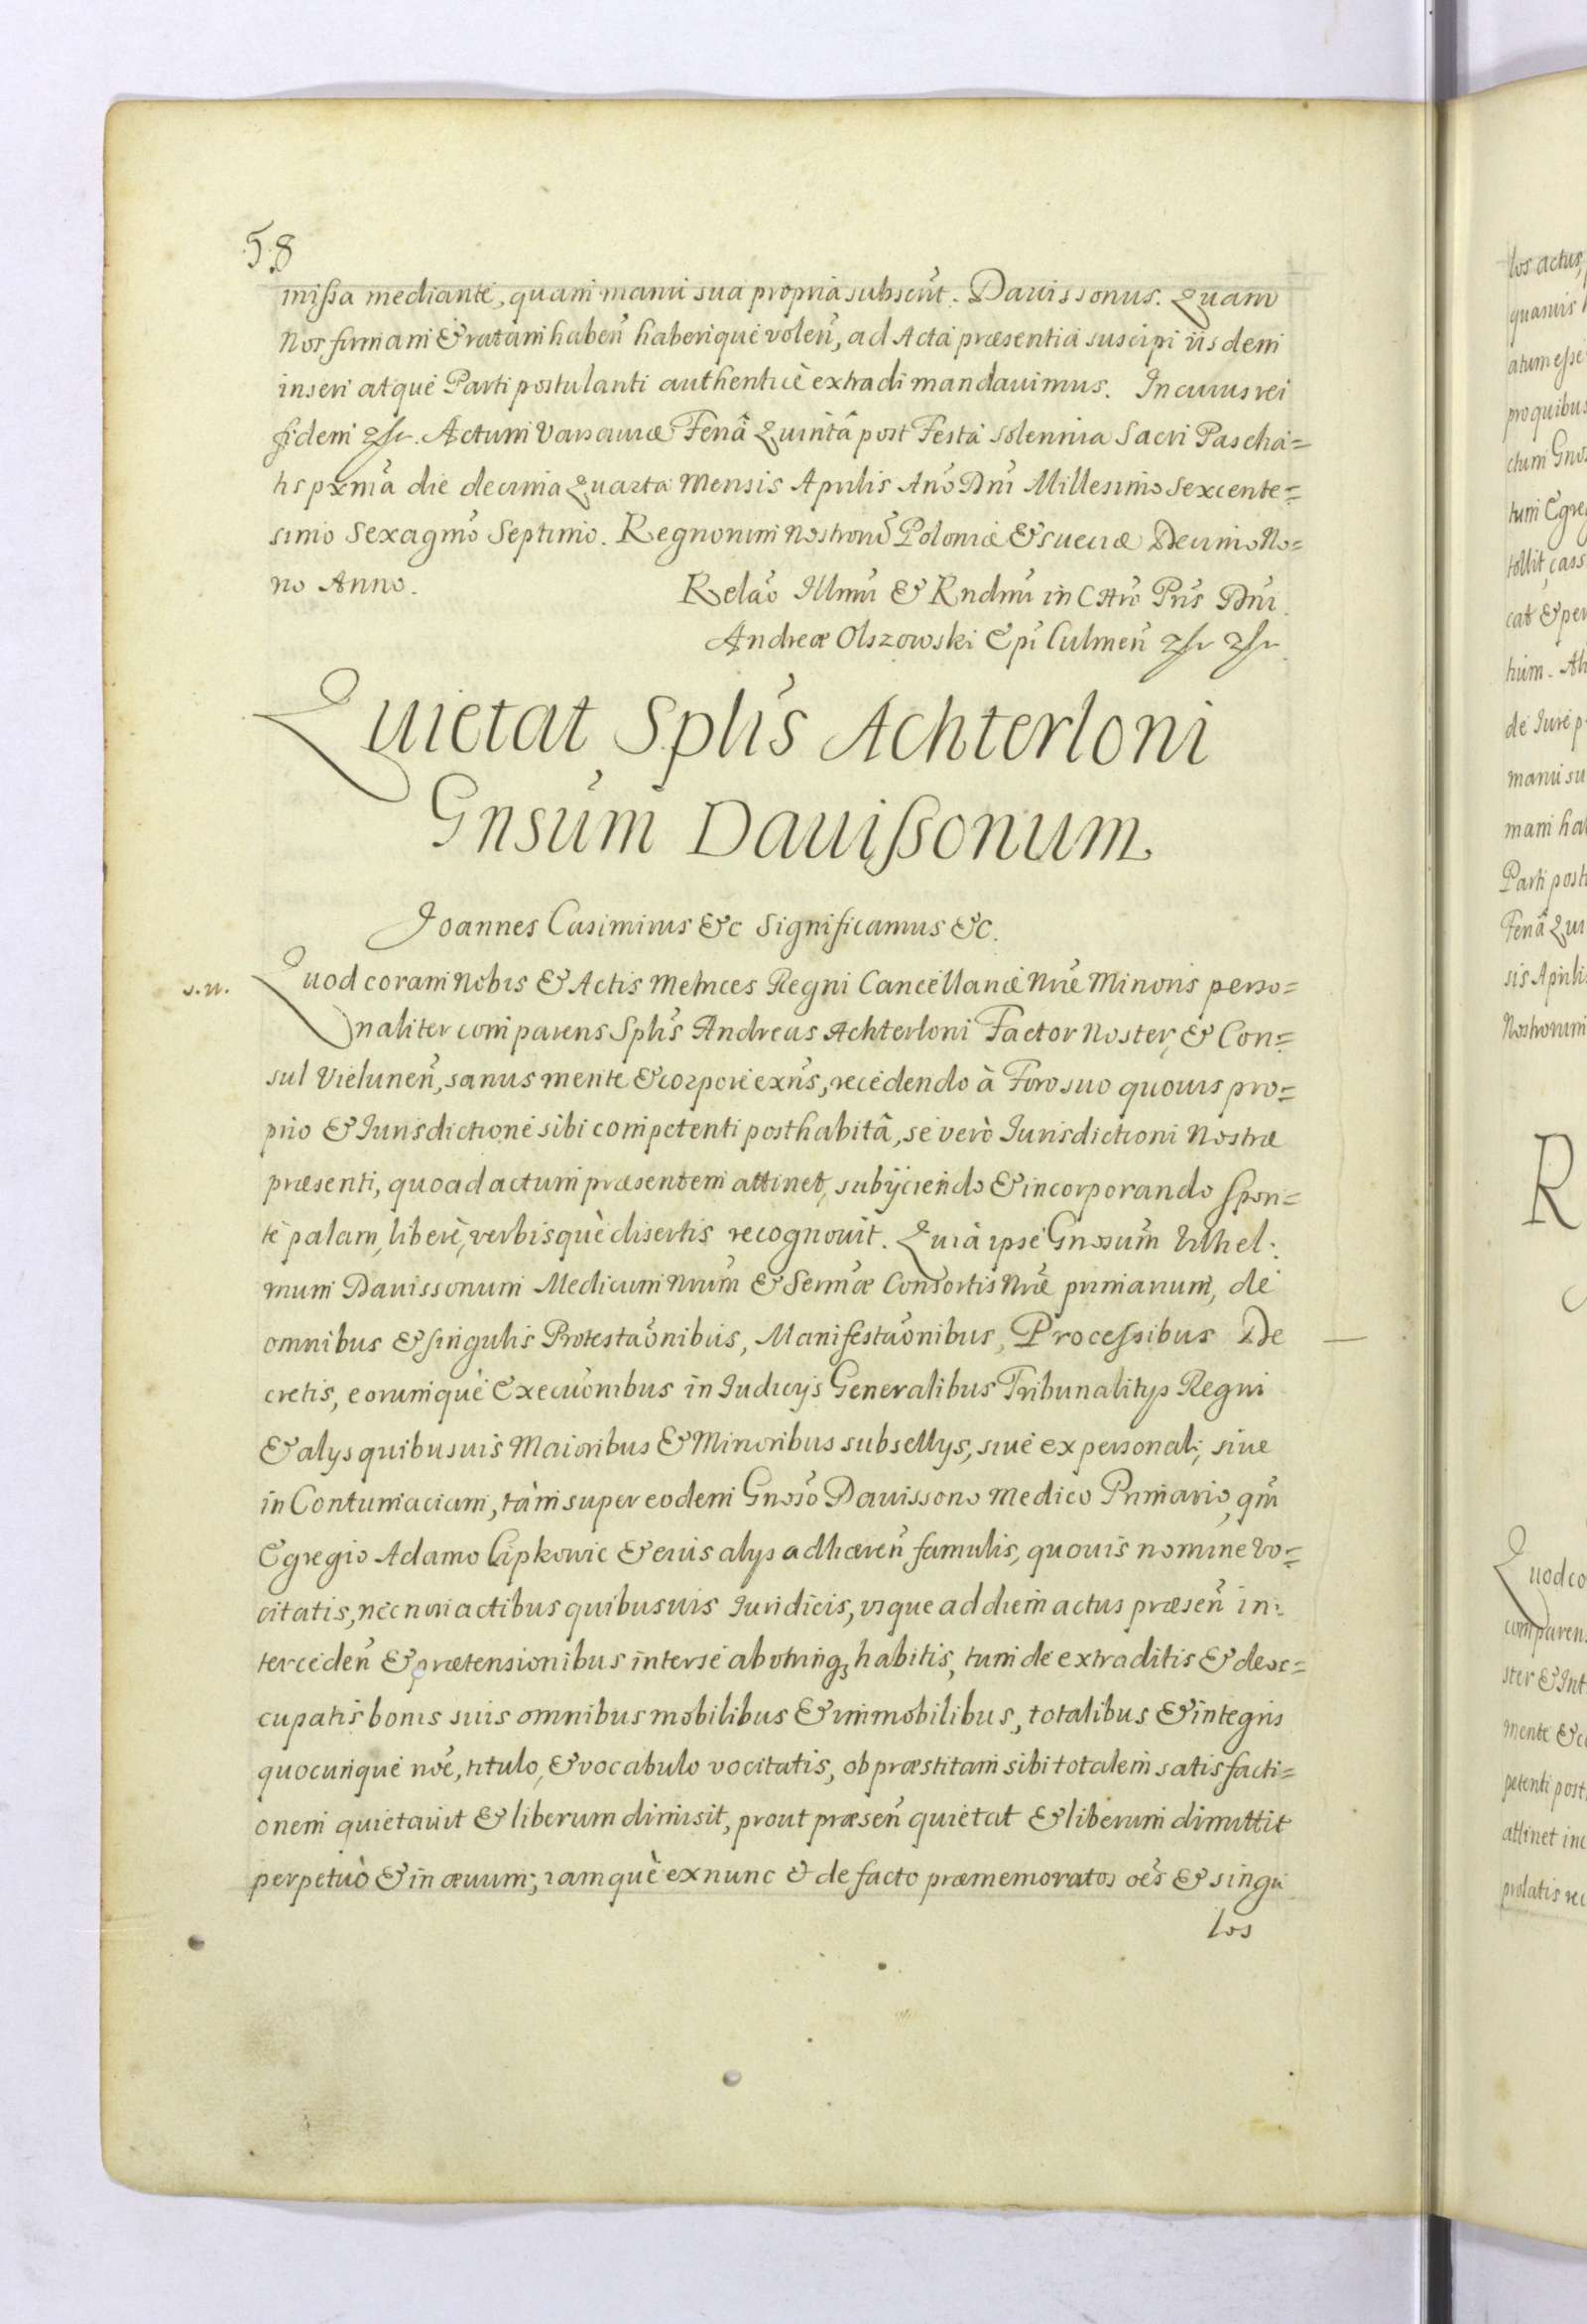 58
missa mediante, quam manu sua propria subscrūt. Dauissonus. Quam
Nos firmam & ratam haben̄ haberique volen̄, ad Acta præsentia suscipi iisdem
inseri atque Parti postulanti authenticè extradi mandauimus. In cuius rei
fidem etc. Actum Varsauiæ Feriâ Quintâ post Festa solennia Sacri Pascha=
lis pxmā die decima Quarta Mensis Aprilis Anō Dnī Millesimo Sexcente=
simo Sexagmō Septimo. Regnorum Nostrorū Poloniæ & Sueciæ Decimo No=
no Anno.
Relaō Illmī & Rndmī in Chrō Pris Dnī
Andreæ Olszowski Epī Culmen̄ etc etc
Quietat Splīs Achterloni
Gnsūm Dauissonum
Joannes Casimirus &c Significamus &c.
s.n.
Quod coram Nobis & Actis Metrices Regni Cancellariæ Nrē Minoris perso=
naliter comparens Splīs Andreas Achterloni Factor Noster, & Con=
sul Vielunen̄, sanus mente & corpore exn̄s, recedendo à Foro suo quouis pro=
prio & Jurisdictione sibi competenti posthabitâ, se verò Jurisdictioni Nostræ
præsenti, quoad actum præsentem attinet, subijciendo & incorporando spon=
te palam, liberè, verbisquè disertis recognouit. Quia ipse Gnosūm Vilhel:
mum Dauissonum Medicum Nrūm & Sermæ Consortis Nrē primarium, de
omnibus & singulis Protestaōnibus, Manifestaōnibus, Processibus De
cretis, eorumquè Execuōnibus in Judicijs Generalibus Tribunalitijs Regni
& alijs quibusuis Maioribus & Minoribus subsellijs, siue ex personali, siue
in Contumaciam, tàm super eodem Gnosō Dauissono Medico Primario, qm̄
Egregio Adamo Lipkowic & eius alijs adhæren̄ famulis, quouis nomine vo=
citatis, nec non actibus quibusuis Juridicis, vsque ad diem actus præsen̄ in=
terceden̄ & prætensionibus inter se ab vtrinq3 habitis, tum de extraditis & deoc=
cupatis bonis suis omnibus mobilibus & immobilibus, totalibus & integris
quocunque nōe, titulo, & vocabulo vocitatis, ob præstitam sibi totalem satisfacti=
onem quietauit & liberum dimisit, prout præsen̄ quietat & liberum dimittit
perpetuò & in æuum; iamquè ex nunc & de facto præmemoratos oēs & singu
los